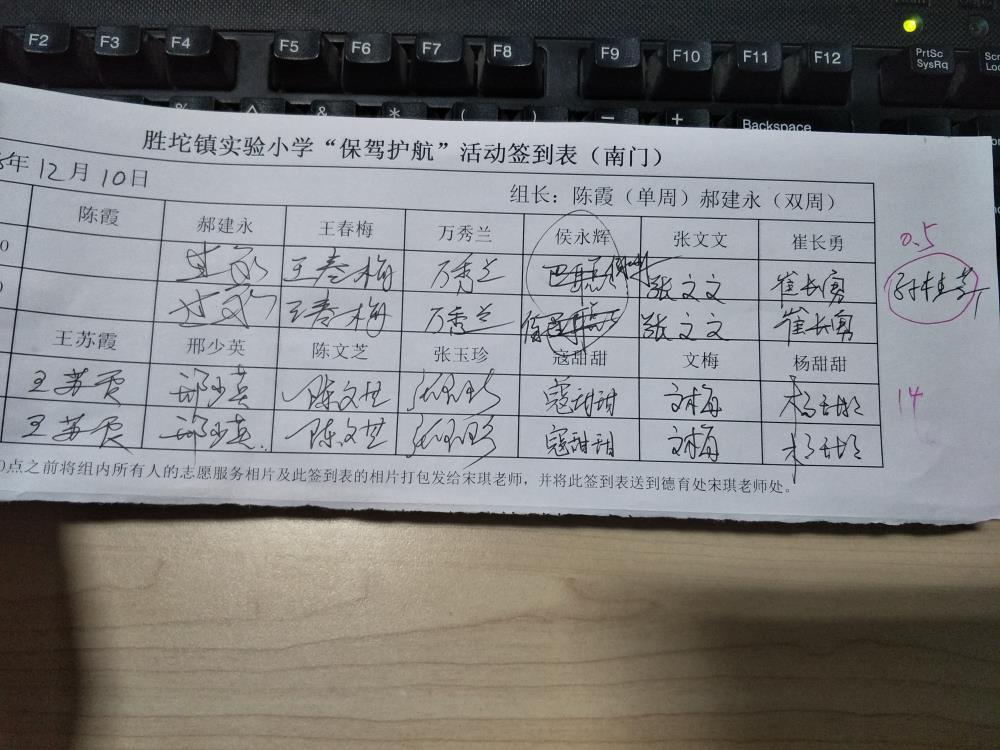 F2 F3 F4 F5 F6 F7 F8 F9 F10 F11 F12 PrtSc
SysRq
% ^ & * ( ) — + Backspace
胜坨镇实验小学“保驾护航”活动签到表（南门）
年12月10日
组长：陈霞（单周）郝建永（双周）
陈霞 郝建永 王春梅 万秀兰 侯永辉 张文文 崔长勇
0.5
王春梅 万秀兰 张文文 崔长勇
王春梅 万秀兰 张文文 崔长勇
王苏霞 邢少英 陈文芝 张玉珍 寇甜甜 文梅 杨甜甜
王苏霞 邢少英 陈文芝 张玉珍 寇甜甜 文梅 杨甜甜
14
王苏霞 邢少英 陈文芝 张玉珍 寇甜甜 文梅 杨甜甜
点之前将组内所有人的志愿服务相片及此签到表的相片打包发给宋琪老师，并将此签到表送到德育处宋琪老师处。